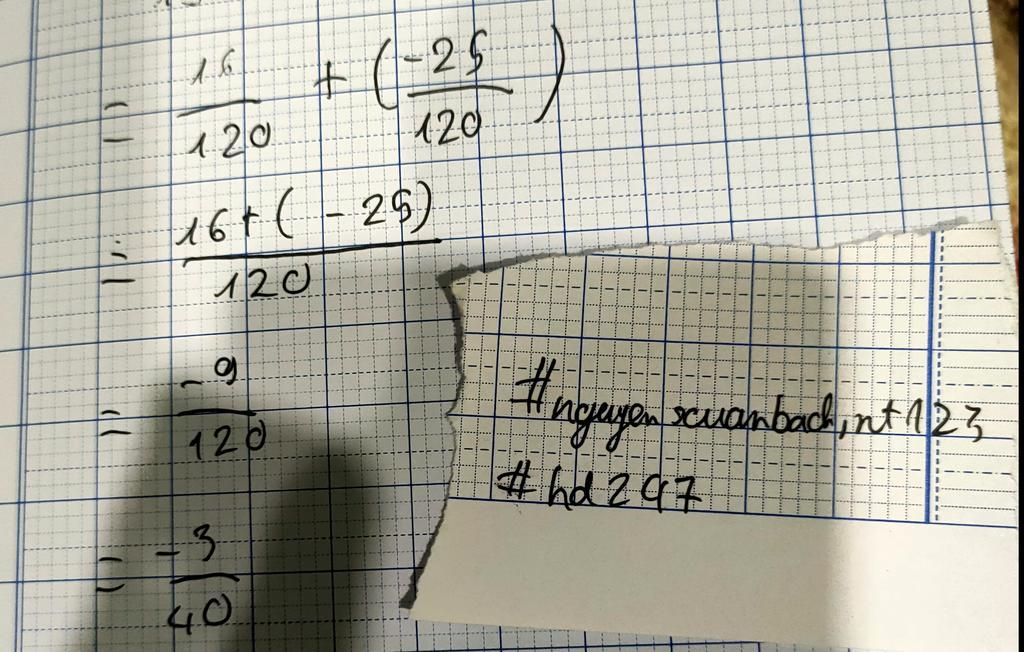 = 16/120 + (-25/120)
= 16+(-25)/120
= -9/120
= -3/40
#nguyenxuanbach,nt123
#hd297